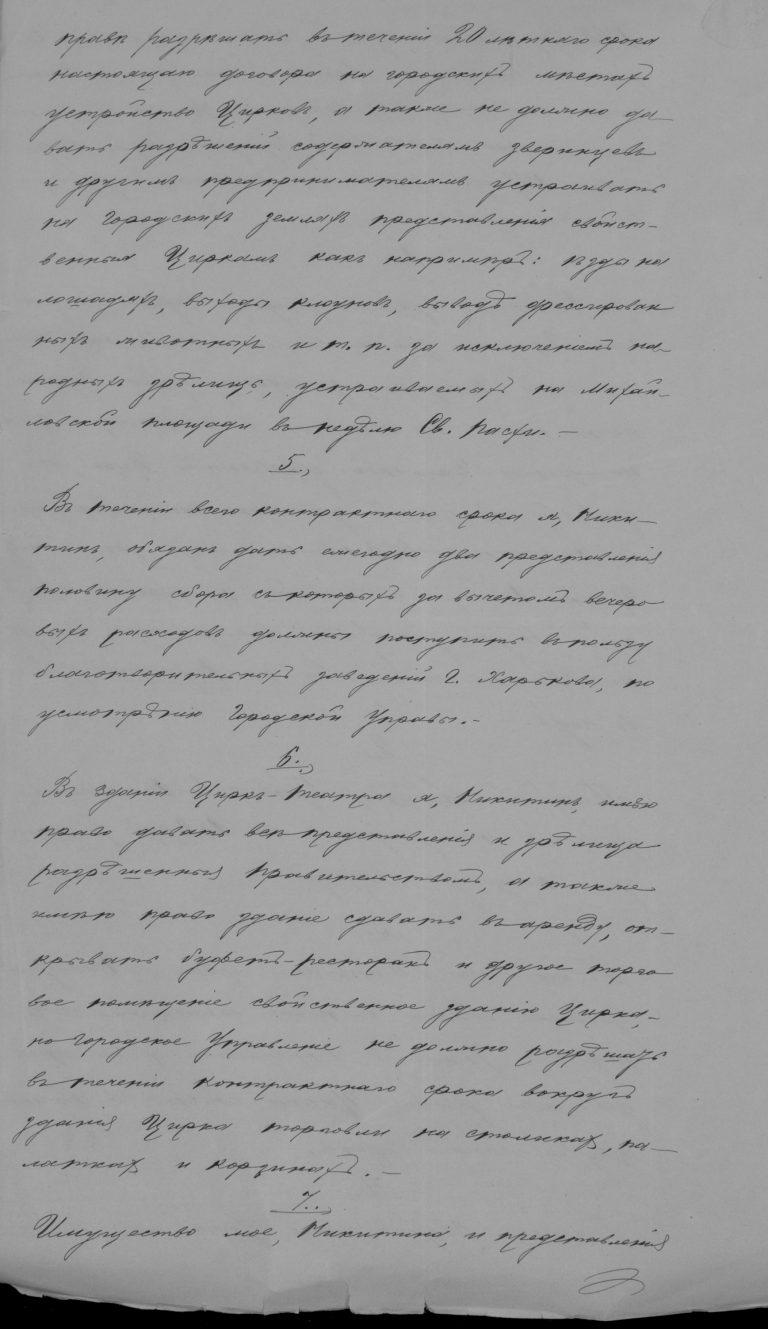 правѣ разрѣшать въ теченіи 20 лѣтняго срока
настоящаго договора на городскихъ мѣстахъ
устройство Цирковъ, а также не должно да-
вать разрѣшеній содержателямъ звѣринцевъ
и другимъ предпринимателямъ устраивать
на Городскихъ земляхъ представленія свойст-
венныя Циркамъ какъ напримѣръ: ѣзды на
лошадяхъ, выходы клоуновъ, выводъ дрессирован
ныхъ животныхъ и т. п. за исключеніемъ на-
родныхъ зрѣлищъ, устраиваемыхъ на Михай-
ловской площади въ недѣлю Св. Пасхи. –
5.,
Въ теченіи всего контрактнаго срока я, Ники-
тинъ, обязанъ дать ежегодно два представленія
половину сбора съ которыхъ за вычетомъ вечеро
выхъ расходовъ должны поступить въ пользу
благотворительныхъ заведеній Г. Харькова, по
усмотрѣнію Городской Управы. –
6.,
Въ зданіи Циркъ-Театра я, Никитинъ, имѣю
право давать всѣ представленія и зрѣлища
разрѣшенныя Правительствомъ, а также
имѣю право зданіе сдавать въ аренду, от-
крывать буфетъ-ресторанъ и другое торго
вое помѣщеніе свойственное зданію Цирка, –
но Городское Управленіе не должно разрѣшать
въ теченіи контрактнаго срока вокругъ
зданія Цирка торговли на столикахъ, па-
латкахъ и корзинахъ. –
7.,
Имущество мое, Никитина, и представленія